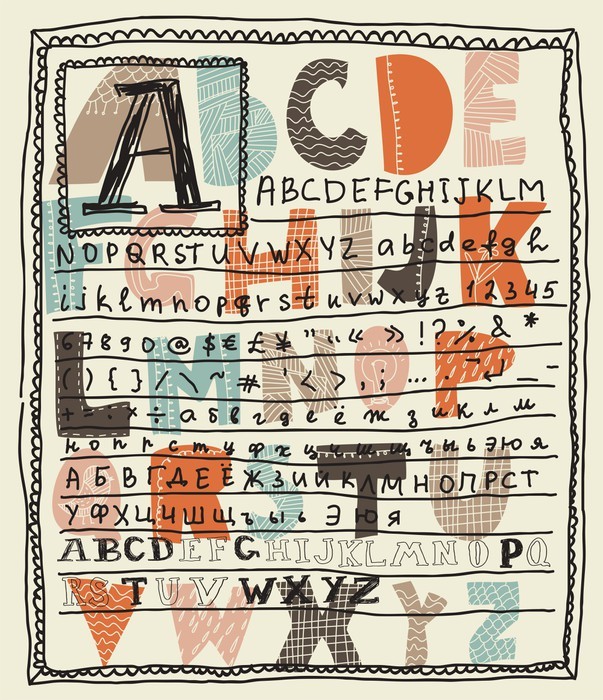 A B C D E
A
ABCDEFGHIJKLM
F G H I J K
NOPQRSTUVWXYZ abcdefgh
ijklmnopqrstuvwxyz 12345
67890 @ $ € £ ¥ " „ “ « » ! ? % & *
L M N O P
( ) { } / \ ~ # ' < > , ; ... · - — _
+ = : × ÷ а б в г д е ё ж з и к л м
н о п р с т у ф х ц ч ш щ ъ ы ь э ю я
Q R S T U
А Б В Г Д Е Ё Ж З И Й К Л М Н О П Р С Т
У Ф Х Ц Ч Ш Щ Ъ Ы Ь Э Ю Я
ABCDEFGHIJKLMNOPQ
RSTUVWXYZ
V W X Y Z